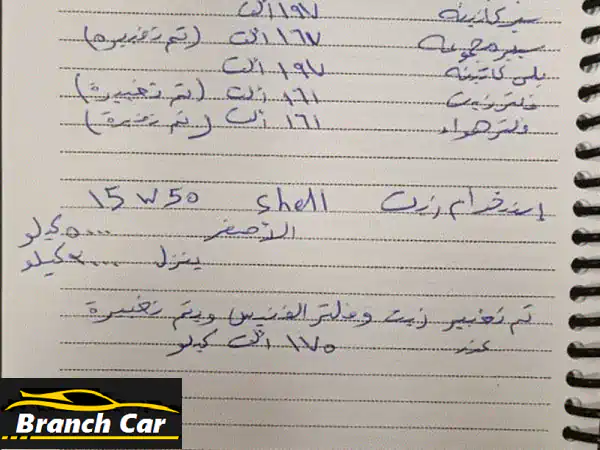 سير كاتينه ١٩٧ الف
سير مجموعه ١٦٧ الف (تم تغييره)
بلى كاتينه ١٩٧ الف
فلتر زيت ١٦١ الف (تم تغييرة)
فلتر هواء ١٦١ الف (تم تغيرة)
إستخدام زيت Shell 15 W 50
الأصفر ٥٠٠٠ كيلو
ينزل ٠٠٠ كيلو
تم تغيير زيت وفلتر الفتيس ويتم تغييرة
عند ١٧٥ الف كيلو
Branch Car